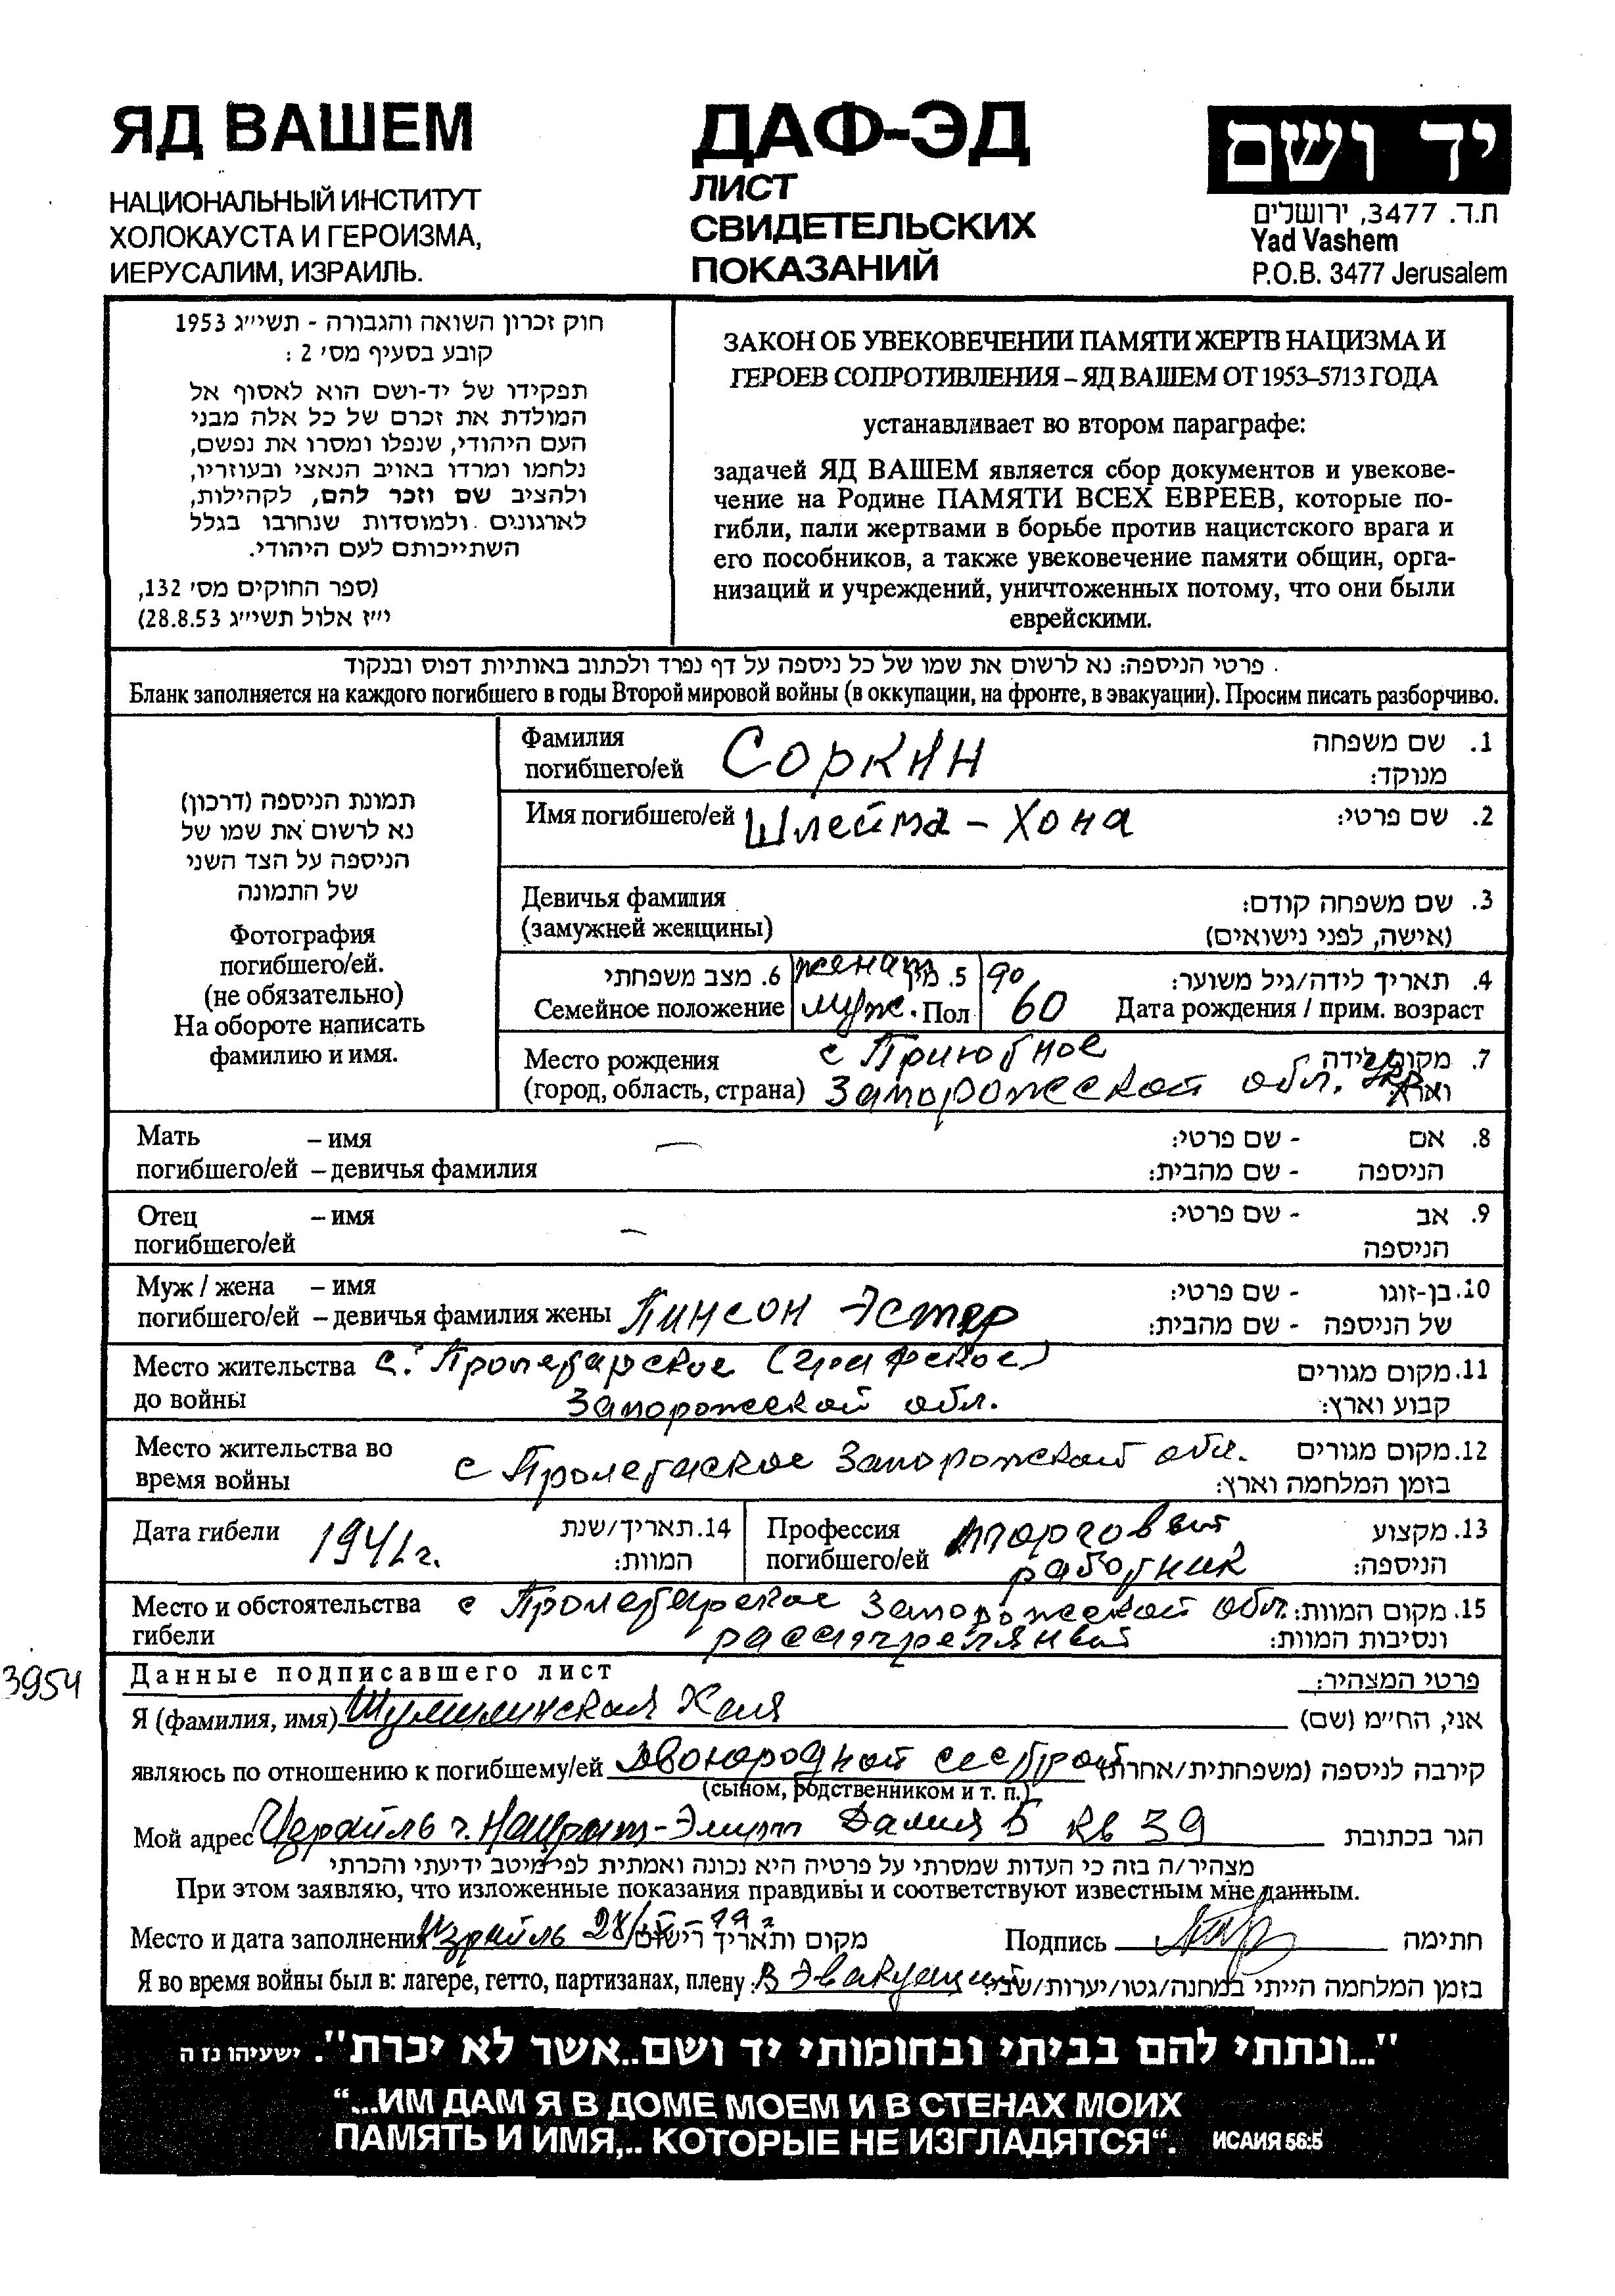 ЯД ВАШЕМ
НАЦИОНАЛЬНЫЙ ИНСТИТУТ
ХОЛОКАУСТА И ГЕРОИЗМА,
ИЕРУСАЛИМ, ИЗРАИЛЬ.
ДАФ-ЭД
ЛИСТ
СВИДЕТЕЛЬСКИХ
ПОКАЗАНИЙ
יד ושם
ת.ד. 3477, ירושלים
Yad Vashem
P.O.B. 3477 Jerusalem
חוק זכרון השואה והגבורה - תשי״ג 1953
קובע בסעיף מס׳ 2 :
תפקידו של יד-ושם הוא לאסוף אל
המולדת את זכרם של כל אלה מבני
העם היהודי, שנפלו ומסרו את נפשם,
נלחמו ומרדו באויב הנאצי ובעוזריו,
ולהציב שם וזכר להם, לקהילות,
לארגונים ולמוסדות שנחרבו בגלל
השתייכותם לעם היהודי.
(ספר החוקים מס׳ 132,
י״ז אלול תשי״ג 28.8.53)
ЗАКОН ОБ УВЕКОВЕЧЕНИИ ПАМЯТИ ЖЕРТВ НАЦИЗМА И
ГЕРОЕВ СОПРОТИВЛЕНИЯ – ЯД ВАШЕМ ОТ 1953–5713 ГОДА
устанавливает во втором параграфе:
задачей ЯД ВАШЕМ является сбор документов и увекове-
чение на Родине ПАМЯТИ ВСЕХ ЕВРЕЕВ, которые по-
гибли, пали жертвами в борьбе против нацистского врага и
его пособников, а также увековечение памяти общин, орга-
низаций и учреждений, уничтоженных потому, что они были
еврейскими.
פרטי הניספה: נא לרשום את שמו של כל ניספה על דף נפרד ולכתוב באותיות דפוס ובנקוד
Бланк заполняется на каждого погибшего в годы Второй мировой войны (в оккупации, на фронте, в эвакуации). Просим писать разборчиво.
תמונת הניספה (דרכון)
נא לרשום את שמו של
הניספה על הצד השני
של התמונה
Фотография
погибшего/ей.
(не обязательно)
На обороте написать
фамилию и имя.
Фамилия Соркин 1. שם משפחה
погибшего/ей מנוקד:
Имя погибшего/ей Шлейма - Хона 2. שם פרטי:
Девичья фамилия 3. שם משפחה קודם:
(замужней женщины) (אישה, לפני נישואים)
6. מצב משפחתי женат 5. מין 90 4. תאריך לידה/גיל משוער:
Семейное положение муж. Пол 60 Дата рождения / прим. возраст
Место рождения с Приютное 7. מקום לידה
(город, область, страна) Запорожской обл. Укр. וארץ
Мать – имя — 8. אם - שם פרטי:
погибшего/ей – девичья фамилия הניספה - שם מהבית:
Отец – имя — 9. אב - שם פרטי:
погибшего/ей הניספה
Муж / жена – имя 10. בן-זוגו - שם פרטי:
погибшего/ей – девичья фамилия жены Пинсон Эстер של הניספה - שם מהבית:
Место жительства с. Пролетарское (графское) 11. מקום מגורים
до войны Запорожской обл. קבוע וארץ:
Место жительства во с Пролетаское Запорожской обл. 12. מקום מגורים
время войны בזמן המלחמה וארץ:
Дата гибели 1941г. 14. תאריך/שנת המוות:
Профессия торговый 13. מקצוע
погибшего/ей работник הניספה:
Место и обстоятельства с Пролетарское Запорожской обл. 15. מקום המוות:
гибели расстрелянный ונסיבות המוות:
3954
Данные подписавшего лист פרטי המצהיר:
Я (фамилия, имя) Шумилинская Хая אני, הח״מ (שם)
являюсь по отношению к погибшему/ей двоюродной сестрой קירבה לניספה (משפחתית/אחרת)
(сыном, родственником и т. п.)
Мой адрес Израиль г. Нацрат-Элит Далия 5 кв 39 הגר בכתובת
מצהיר/ה בזה כי העדות שמסרתי על פרטיה היא נכונה ואמתית לפי מיטב ידיעתי והכרתי
При этом заявляю, что изложенные показания правдивы и соответствуют известным мне данным.
Место и дата заполнения Израиль מקום ותאריך רישום Подпись חתימה
Я во время войны был в: лагере, гетто, партизанах, плену: В Эвакуации בזמן המלחמה הייתי במחנה/גטו/יערות/שבי:
"...ונתתי להם בביתי ובחומותי יד ושם..אשר לא יכרת". ישעיהו נז ה
“...ИМ ДАМ Я В ДОМЕ МОЕМ И В СТЕНАХ МОИХ
ПАМЯТЬ И ИМЯ,.. КОТОРЫЕ НЕ ИЗГЛАДЯТСЯ“. ИСАИЯ 56:5